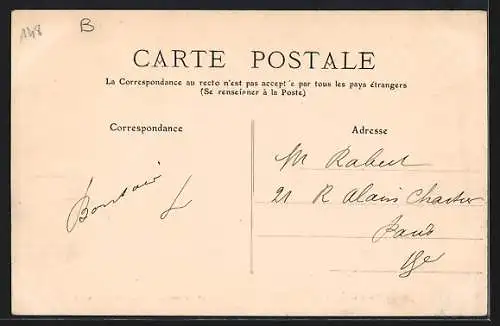 1148
B
CARTE POSTALE
La Correspondance au recto n'est pas accept'e par tous les pays étrangers
(Se renseigner à la Poste)
Correspondance
Adresse
M Rabut
21 R Alain Chartier
Paris
15e
Bonsoir